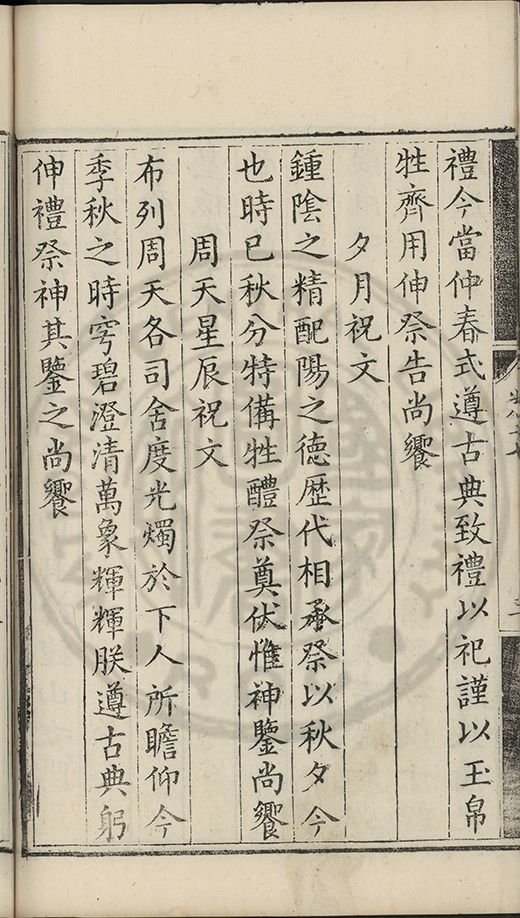 禮今當仲春式遵古典致禮以祀謹以玉帛
牲齊用伸祭告尚饗
夕月祝文
鍾陰之精配陽之德歷代相承祭以秋夕今
也時巳秋分特備牲醴祭奠伏惟神鑒尚饗
周天星辰祝文
布列周天各司舍度光燭於下人所瞻仰今
季秋之時穹碧澄清萬象輝輝朕遵古典躬
伸禮祭神其鑒之尚饗